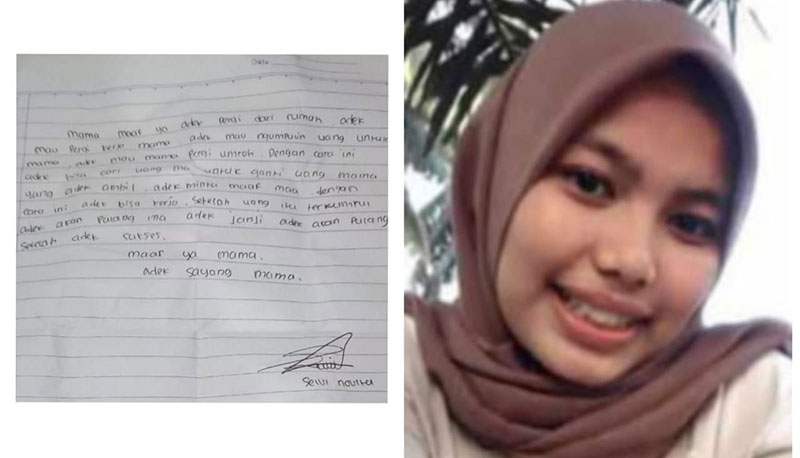 Date
mama maaf ya adek pergi dari rumah. adek
mau pergi kerja mama. adek mau ngumpulin uang untuk
mama. adek mau mama pergi umroh. Dengan cara ini
adek bisa cari uang ma untuk ganti uang mama
yang adek ambil. adek minta maaf maa dengan
cara ini adek bisa kerja. setelah uang itu terkumpul
adek akan pulang ma adek janji adek akan pulang
setelah adek sukses.
maaf ya mama.
adek sayang mama.
novita